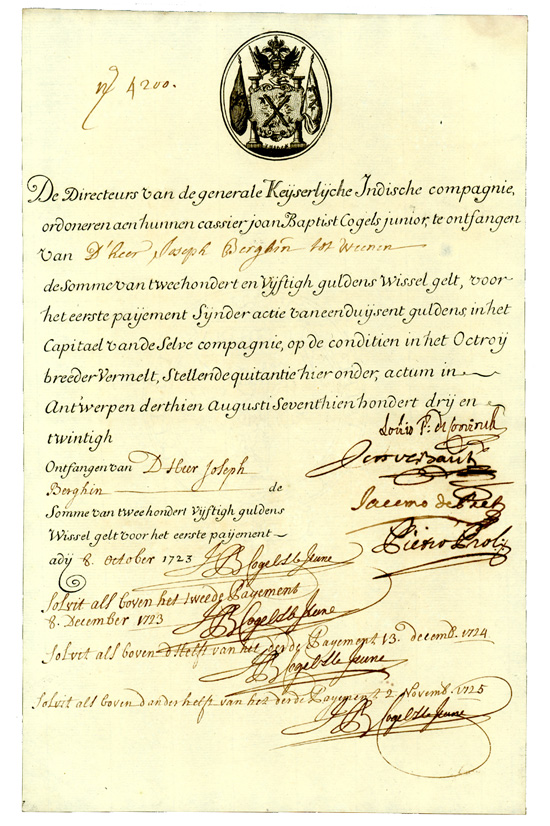 No 4200.
De Directeurs van de generale Keyserlycke Indische compagnie,
ordoneren aen hunnen cassier joan Baptist Cogels junior, te ontfangen
van D'heer, Joseph Berghin tot Weenen
de Somme van tweehondert en Vyftigh guldens Wissel gelt, voor
het eerste payement Synder actie van eenduysent guldens, in het
Capitael van de Selve compagnie, op de conditien in het Octroy
breeder Vermelt, Stellende quitantie hier onder, actum in
Antwerpen derthien Augusti Seventhien hondert dry en
twintigh
Ontfangen van D Heer Joseph
Berghin de
Somme van tweehondert Vyftigh guldens
Wissel gelt voor het eerste payement
ady 8. october 1723
JB Cogels le Jeune
Solvit als boven het tweede Payement
8. December 1723
JB Cogels le Jeune
Solvit als boven d'helft van het derde Payement 13. decemb. 1724
JB Cogels le Jeune
Solvit als boven d'ander helft van het derde Payement 2 Novemb. 1725
JB Cogels le Jeune
Jacomo de Pret
Pietro Proli